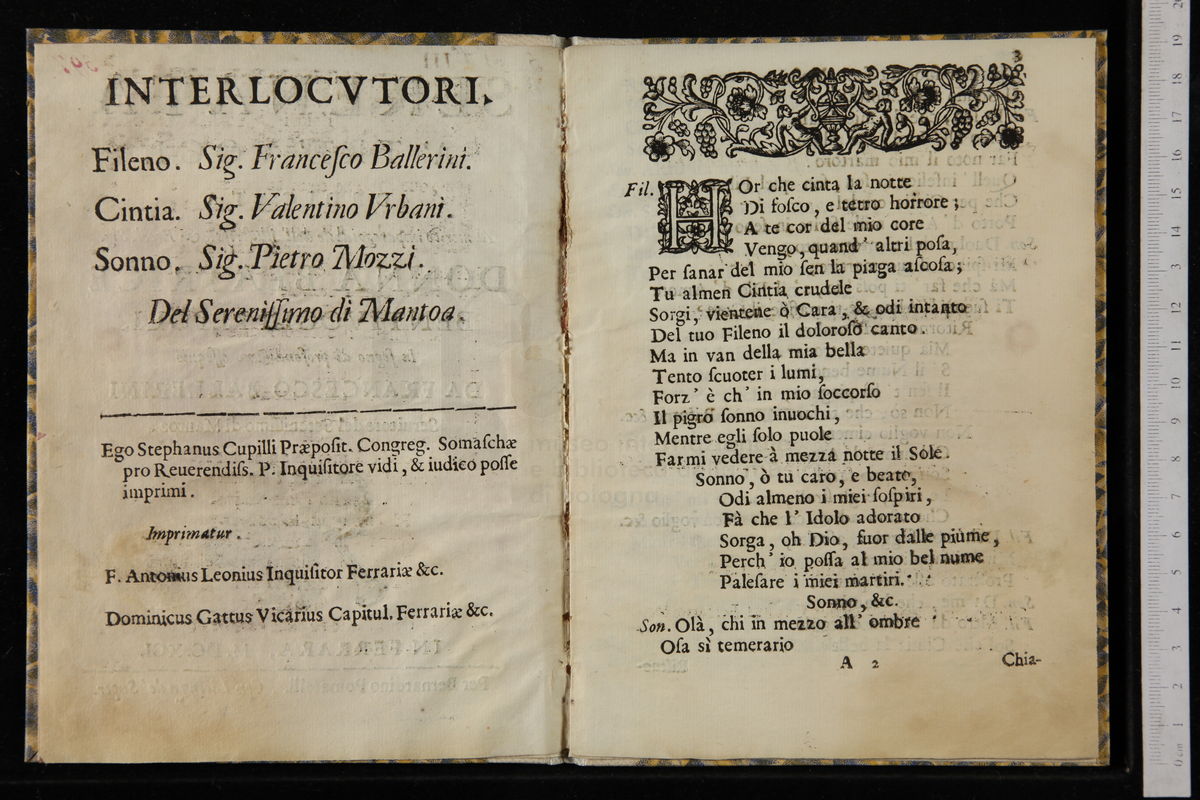 INTERLOCVTORI.
Fileno. Sig. Franceſco Ballerini.
Cintia. Sig. Valentino Vrbani.
Sonno. Sig. Pietro Mozzi.
Del Sereniſſimo di Mantoa.
Ego Stephanus Cupilli Præpoſit. Congreg. Somaſchæ
pro Reuerendiſs. P. Inquiſitore vidi, & iudico poſſe
imprimi.
Imprimatur.
F. Antonius Leonius Inquiſitor Ferrariæ &c.
Dominicus Gattus Vicarius Capitul. Ferrariæ &c.
3
Fil. HOr che cinta la notte
Di foſco, e tetro horrore;
A te cor del mio core
Vengo, quand' altri poſa,
Per ſanar del mio ſen la piaga aſcoſa;
Tu almen Cintia crudele
Sorgi, vientene ò Cara, & odi intanto
Del tuo Fileno il doloroſo canto.
Ma in van della mia bella
Tento ſcuoter i lumi,
Forz' è ch' in mio ſoccorſo
Il pigro ſonno inuochi,
Mentre egli ſolo puole
Farmi vedere à mezza notte il Sole.
Sonno, ò tu caro, e beato,
Odi almeno i miei ſoſpiri,
Fà che l' Idolo adorato
Sorga, oh Dio, fuor dalle piume,
Perch' io poſſa al mio bel nume
Paleſare i miei martiri.
Sonno, &c.
Son. Olà, chi in mezzo all' ombre
Oſa sì temerario
A 2 Chia-